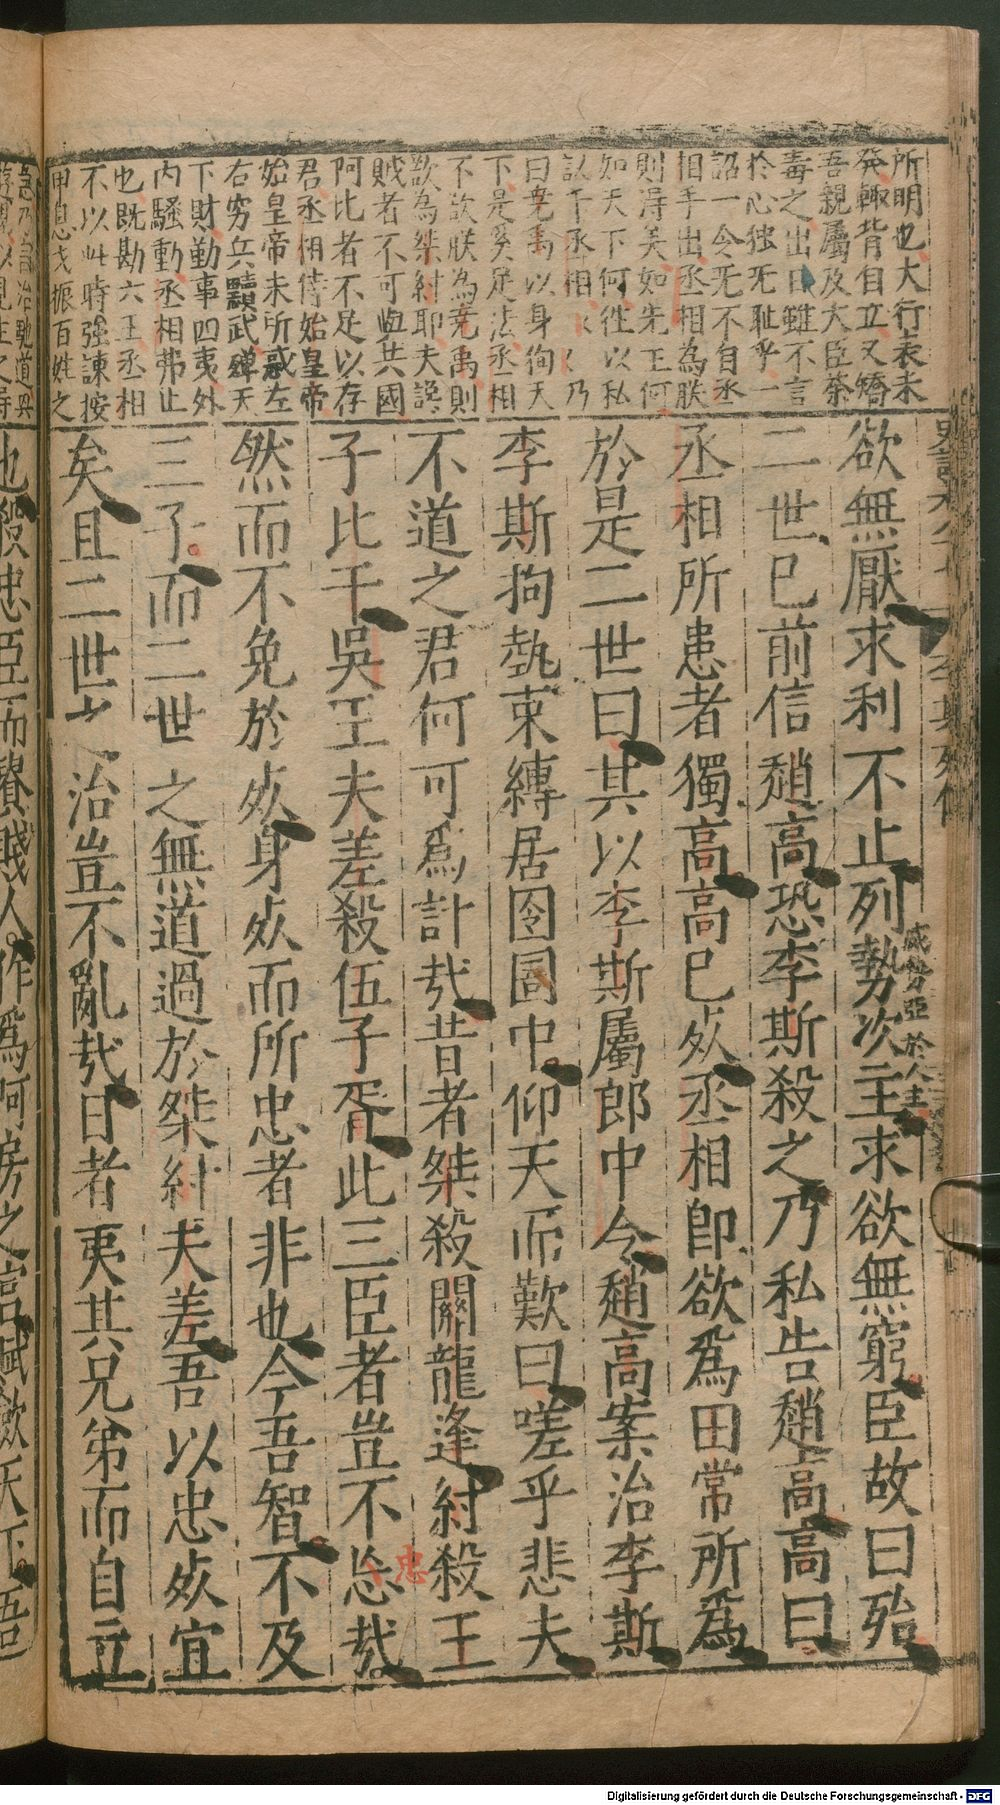 所明也大行之表未
發輙背自立又矯
吾親屬及大臣荼
毒之出日雖不言
於心独无耻乎一
詔一令无不自丞
相手出丞相為朕
則得美如先王何
如天下何徃以私
以干丞相
乃
曰尭禹以身徇天
下是奚足法丞相
不欲朕為尭禹則
欲為桀紂耶夫䜛
賊者不可與共國
阿比者不足以存
君丞相侍始皇帝
始皇帝未所惑左
右穷兵黷武殫天
下財勤事四夷外
内騷動丞相弗止
也既勘六王丞相
不以此時强諫按
甲息戈振百姓之
欲無厭求利不止列勢次主求欲無窮臣故曰殆
威勢亞於人主
二世已前信趙高恐李斯殺之乃私告趙高高曰
丞相所患者獨高高已死丞相即欲爲田常所爲
於是二世曰其以李斯屬郎中令趙高案治李斯
李斯拘執束縛居囹圄中仰天而歎曰嗟乎悲夫
不道之君何可爲計哉昔者桀殺關龍逢紂殺王
子比干吳王夫差殺伍子胥此三臣者豈不忩哉
忠
然而不免於死身死而所忠者非也今吾智不及
三子而二世之無道過於桀紂夫差吾以忠死宜
矣且二世之治豈不亂哉日者夷其兄弟而自立
也殺忠臣而貴賤人作爲阿房之宫賦斂天下吾
Digitalisierung gefördert durch die Deutsche Forschungsgemeinschaft - DFG